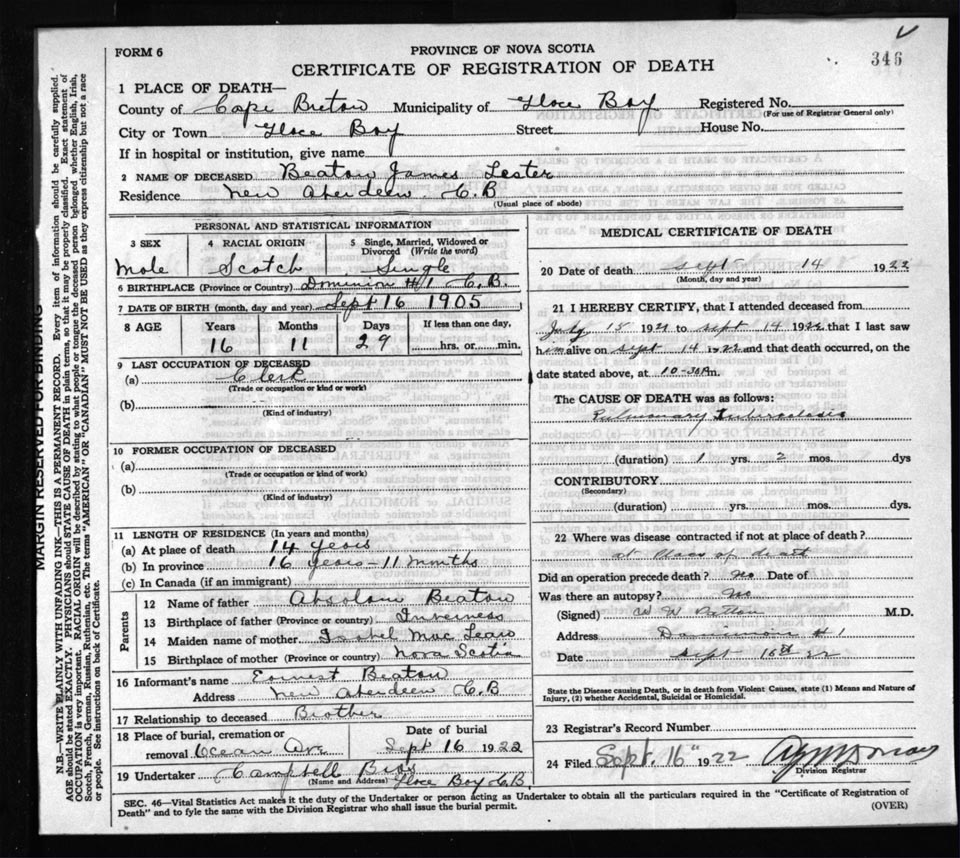 FORM 6
PROVINCE OF NOVA SCOTIA
346
CERTIFICATE OF REGISTRATION OF DEATH
1 PLACE OF DEATH—
County of Cape Breton Municipality of Glace Bay Registered No.
(For use of Registrar General only)
City or Town Glace Bay Street House No.
If in hospital or institution, give name
2 NAME OF DECEASED Beaton James Lester
Residence New Aberdeen C.B.
(Usual place of abode)
PERSONAL AND STATISTICAL INFORMATION
3 SEX 4 RACIAL ORIGIN 5 Single, Married, Widowed or Divorced (Write the word)
Male Scotch Single
6 BIRTHPLACE (Province or Country) Dominion #1 C.B.
7 DATE OF BIRTH (month, day and year) Sept 16 1905
8 AGE Years Months Days If less than one day,
16 11 29 hrs. or min.
9 LAST OCCUPATION OF DECEASED
(a) Clerk
(Trade or occupation or kind or work)
(b)
(Kind of industry)
10 FORMER OCCUPATION OF DECEASED
(a)
(Trade or occupation or kind of work)
(b)
(Kind of industry)
11 LENGTH OF RESIDENCE (In years and months)
(a) At place of death 14 years
(b) In province 16 years - 11 months
(c) In Canada (if an immigrant)
Parents
12 Name of father Absolom Beaton
13 Birthplace of father (Province or country) Inverness
14 Maiden name of mother Isabel Mac Lean
15 Birthplace of mother (Province or country) Nova Scotia
16 Informant's name Earnest Beaton
Address New Aberdeen C.B
17 Relationship to deceased Brother
18 Place of burial, cremation or Date of burial
removal Ocean Ave Sept 16 1922
19 Undertaker Campbell Bros
(Name and Address) Glace Bay C.B.
MEDICAL CERTIFICATE OF DEATH
20 Date of death Sept 14 1922
(Month, day and year)
21 I HEREBY CERTIFY, that I attended deceased from
July 15 1921 to Sept 14 1922 that I last saw
him alive on Sept 14 1922 and that death occurred, on the
date stated above, at 10-30 Am.
The CAUSE OF DEATH was as follows:
Pulmonary Tuberculosis
(duration) 1 yrs. 2 mos. dys
CONTRIBUTORY
(Secondary)
(duration) yrs. mos. dys.
22 Where was disease contracted if not at place of death?
at place of death
Did an operation precede death? No Date of
Was there an autopsy? No
(Signed) W W Patton M.D.
Address Dominion #1
Date Sept 15th 22
State the Disease causing Death, or in death from Violent Causes, state (1) Means and Nature of
Injury, (2) whether Accidental, Suicidal or Homicidal.
23 Registrar's Record Number
24 Filed Sept. 16" 1922
Division Registrar
SEC. 46—Vital Statistics Act makes it the duty of the Undertaker or person acting as Undertaker to obtain all the particulars required in the "Certificate of Registration of
Death" and to fyle the same with the Division Registrar who shall issue the burial permit.
(OVER)
MARGIN RESERVED FOR BINDING
N.B.—WRITE PLAINLY WITH UNFADING INK—THIS IS A PERMANENT RECORD. Every item of information should be carefully supplied.
AGE should be stated EXACTLY. PHYSICIANS should STATE CAUSE OF DEATH in plain terms, so that it may be properly classified. Exact statement of
OCCUPATION is very important. RACIAL ORIGIN will be described by stating to what people or tongue the deceased person belonged whether English, Irish,
Scotch, French, German, Russian, Ruthenian, etc. The terms "AMERICAN" OR "CANADIAN" MUST NOT BE USED as they express citizenship but not a race
or people. See instructions on back of Certificate.